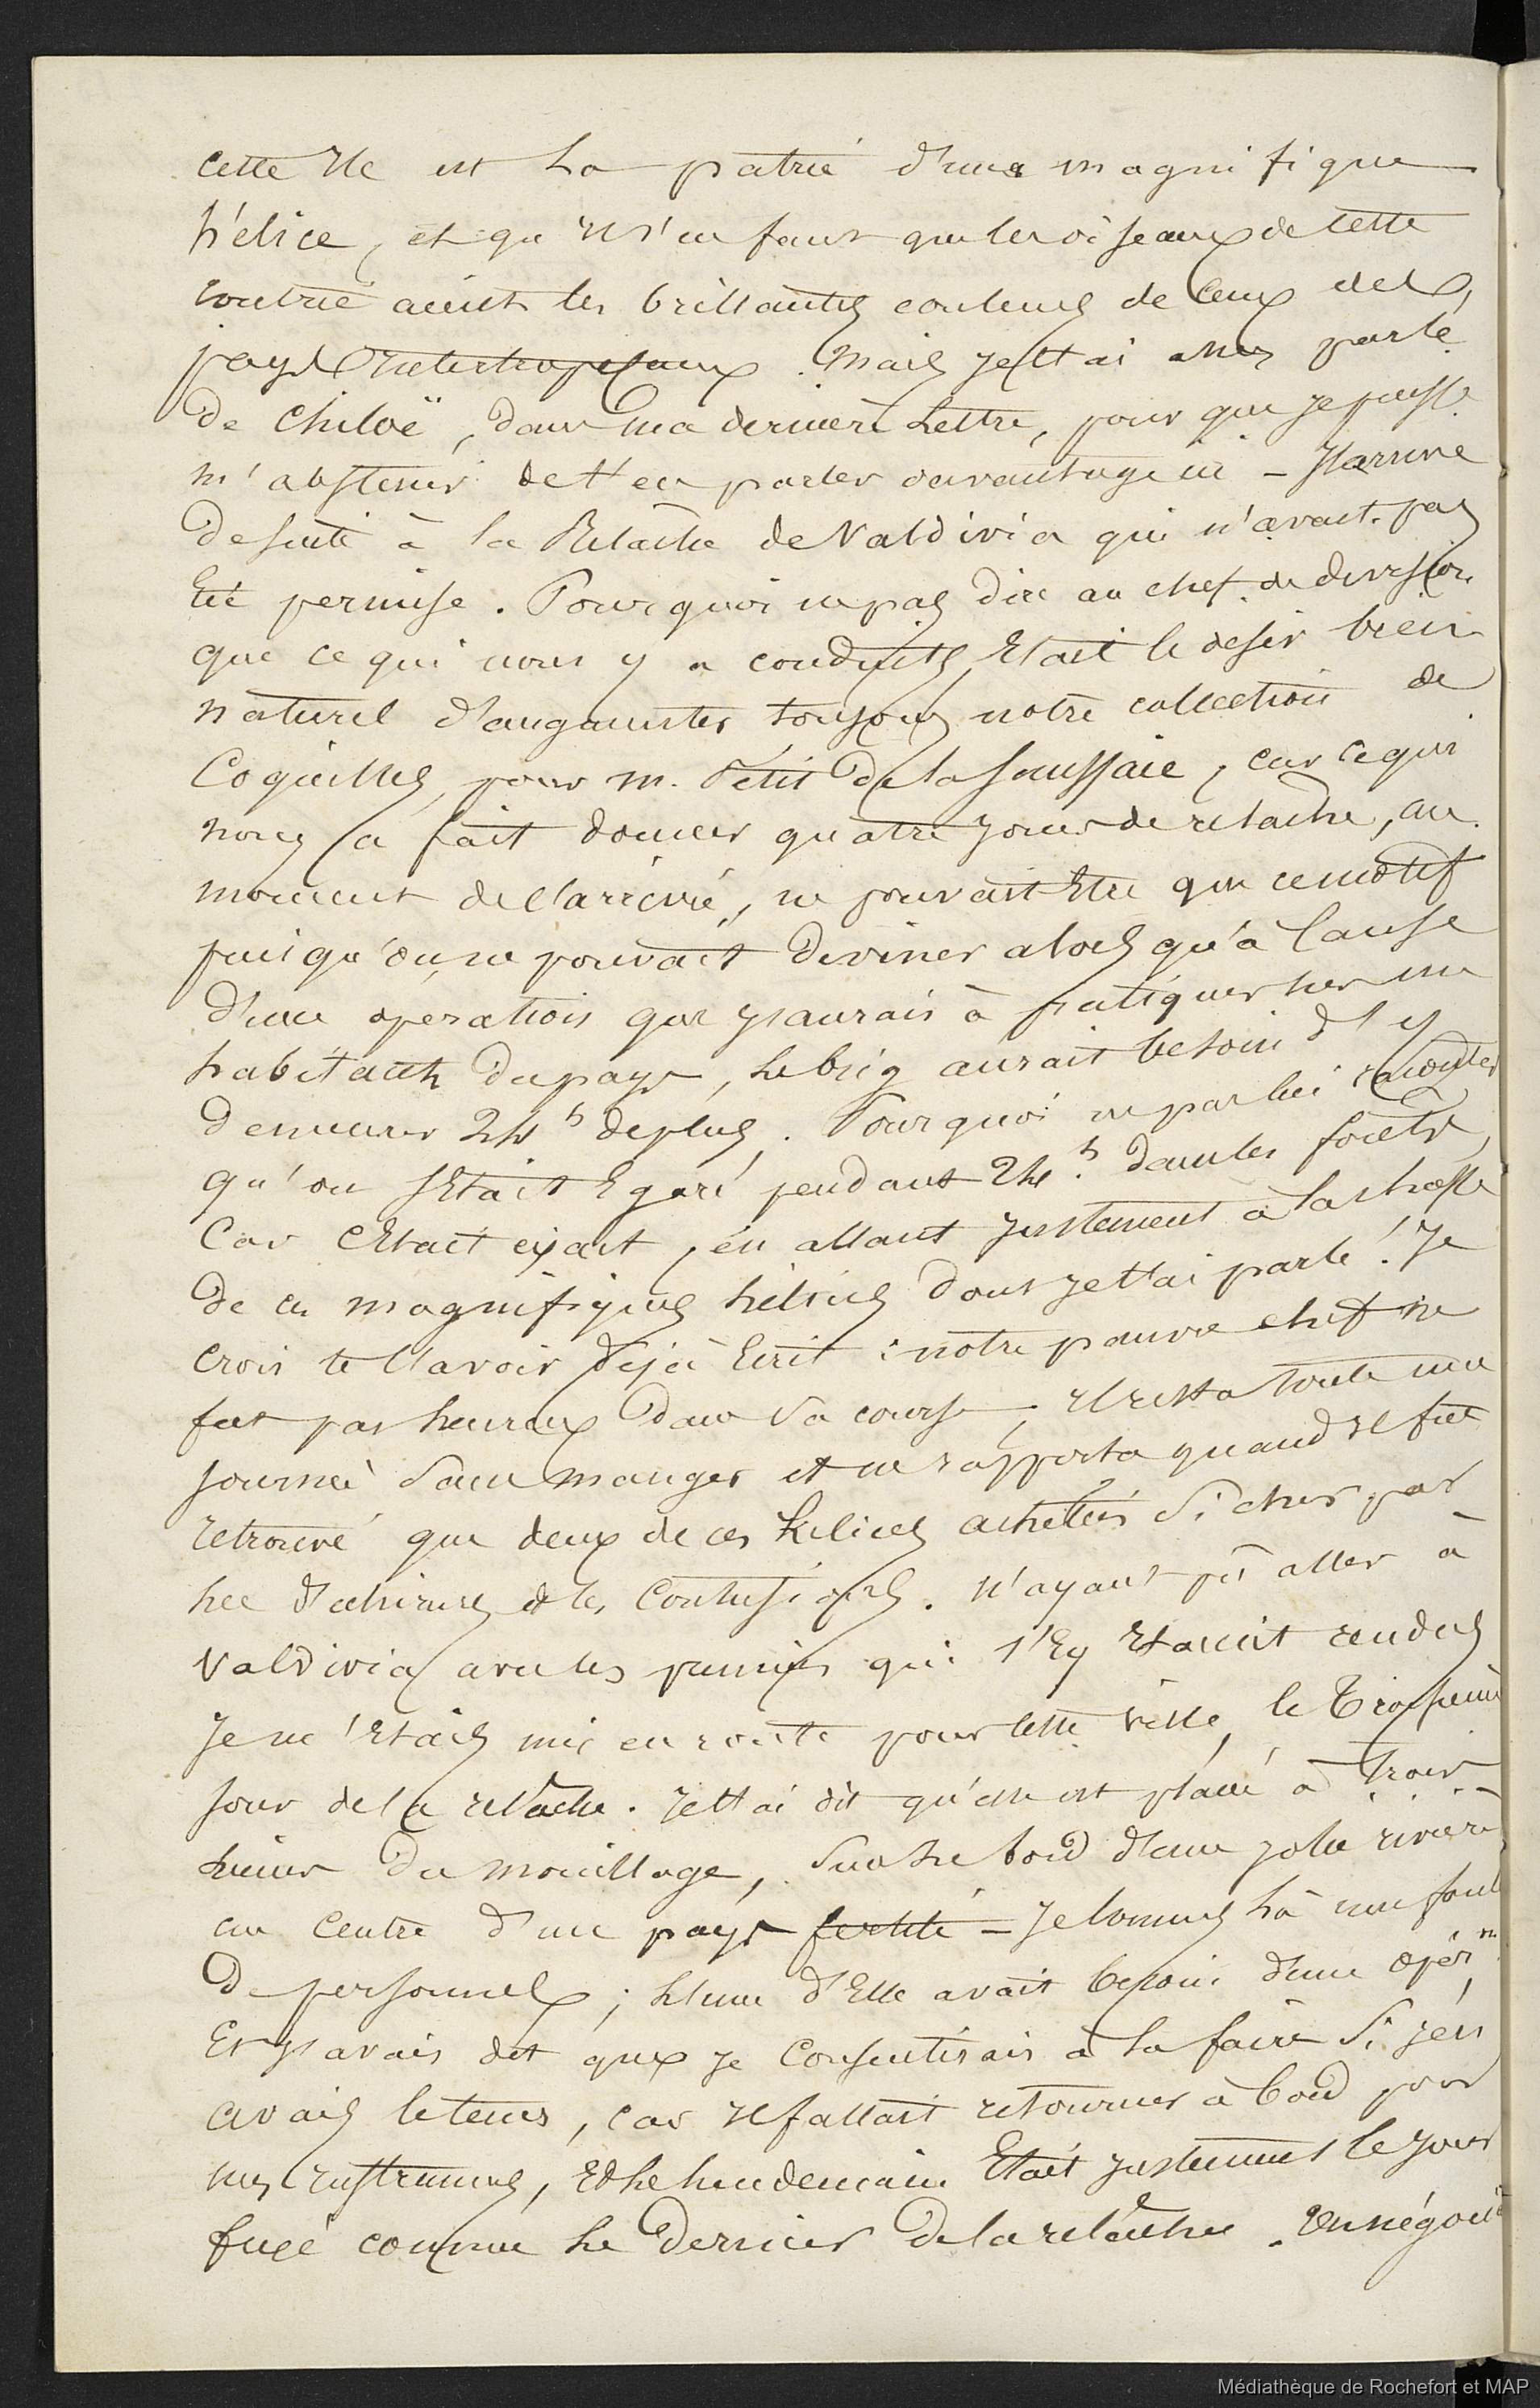 cette Ile est la patrie d'une magnifique
hélice, et qu'il s'en faut que les oiseaux de cette
contrée aient les brillantes couleurs de ceux des
pays intertropicaux. Mais je t'ai assez parlé
de Chiloë, dans ma dernière Lettre, pour que je puisse
m'abstenir de t'en parler davantage ici – J'arrive
de suite à la Relâche de Valdivia qui n'avait pas
Eté permise. Pourquoi ne pas dire au chef de division
que ce qui nous y a conduits, Etait le désir bien
naturel d'augmenter toujours notre collection de
Coquilles, pour M. Petit de la Saussaie, car ce qui
nous a fait donner quatre jours de relache, au
moment de l'arrivée, ne pouvait Etre que ce motif
puisqu'on ne pouvait deviner alors qu'à cause
d'une opération que j'aurais à pratiquer sur un
habitant du pays, le brig aurait besoin d'y
demeurer 24h de plus. Pourquoi ne pas lui raconter
qu'on s'Etait Egaré pendant 24h. dans les forêts,
Car c'Etait exact, en allant justement à la chasse
de ces magnifiques hélices dont je t'ai parlé! Je
crois te l'avoir déjà Ecrit: notre pauvre chef ne
fut pas heureux dans sa course, il resta toute une
journée sans manger et ne rapporta quand il fut
retrouvé que deux de ces hélices achetées si cher par
les déchirures et les Contusions. N'ayant pû aller à
Valdivia avec les premiers qui s'Ey Etaient rendus
Je m'Etais mis en route pour cette ville, le Troisième
jour de la relâche. Je t'ai dit qu'elle est placée à Trois
lieues du mouillage, sur le bord d'une jolie rivière
au Centre d'un pays fertile – Je connus là une foule
de personnes; l'une d'Elle avait besoin d'une opérn
Et j'avais dit que je Consentirais à la faire Si j'en
avais le tems, car il fallait retourner à bord pour
mes instrumens, Et le lendemain Etait justement le jour
fixé comme le Dernier de la relâche. Un négocit